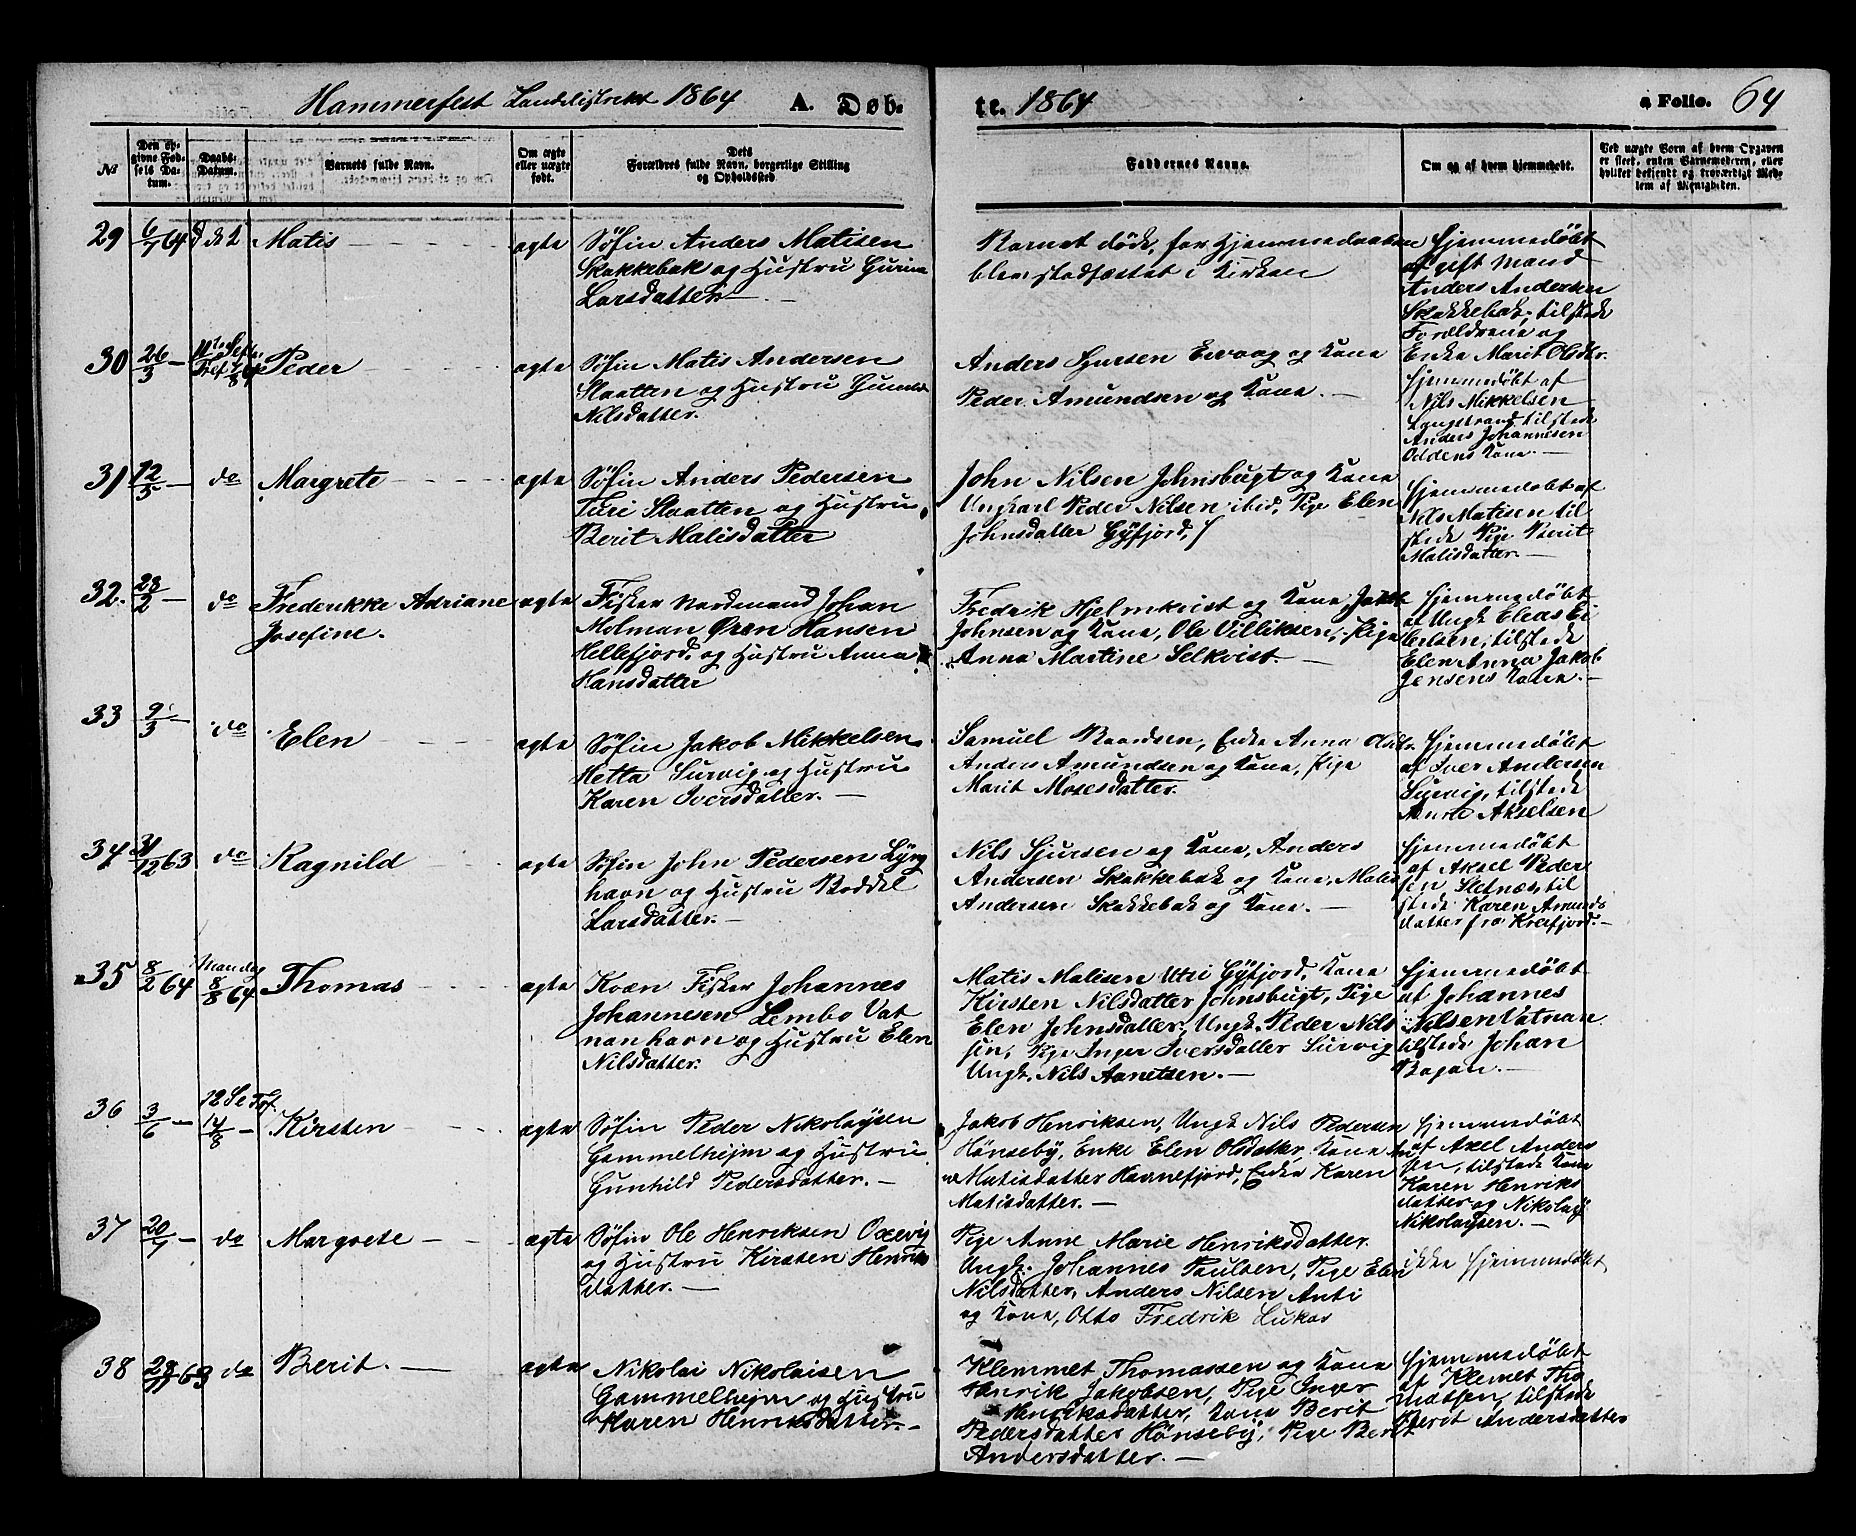 Hammerfest Landdistrikt 1864 A. Døb-
te. 1864 a Folio. 64
№
Den op-
givne Fød-
sels Da-
tum.
Daabs-
Datum.
Barnets fulde Navn.
Om ægte
eller uægte
født.
Dets
Forældres fulde Navn, borgerlige Stilling
og Opholdssted.
Faddernes Navne.
Om og af hvem hjemmedøbt.
Ved uægte Børn af hvem Opgaven
er skeet, enten Barnemoderen, eller
hvilket bekjendt og troværdigt Med-
lem af Menigheden.
29 6/7 64 Matis ægte
Søfin Anders Matisen
Skakkebak og Hustru Gurine
Larsdatter
Barnet døde, før Hjemmedaaben
blev stadfæstet i Kirken
Hjemmedøbt
af gift Mand
Anders Andersen
Skakkebak, tilstede
Forældrene og
Enke Marit Olsdtr.
30 26/3 — Peder ægte
Søfin Matis Andersen
Slaatten og Hustru
Nilsdatter.
Anders Sjursen og Kone
Peder Amundsen og Kone. —
Hjemmedøbt af
Nils Mikkelsen
Langstrand, tilstede
Anders Johannesen
Oddens Kone. —
31 12/5 — do Margrete ægte
Søfin Anders Pedersen
Turi Slaatten og Hustru
Berit Matisdatter
John Nilsen Johnsbugt og Kone
Ungkarl Peder Nilsen ibid, Pige Elen
Johnsdatter Gÿfjord,
Hjemmedøbt af
Nils Matisen til
stede Pige Berit
Matisdatter. —
32. 23/2 — do Frederikke Adriane ægte
Josefine.
Fisker Nordmand Johan
Molman Øren Hansen
Hellefjord, og Hustru Anna
Hansdatter
Fredrik Hjelmkvist og Kone Jakob
Johnsen og Kone, Ole Villiksen, Pige
Anna Martine Selkvist. —
Hjemmedøbt
af Ungk Elias Ei
lertsen, tilstede
Elen Anna Jakob
Jensens Kone. —
33 9/3 — do Elen ægte
Søfin Jakob Mikkelsen
Hetta Survig og Hustru
Karen Iversdatter. —
Samuel Baardsen, Enke Anna Olsdtr
Anders Amundsen og Kone, Pige
Marit Mosesdatter.
Hjemmedøbt
af Iver Andersen
Survig, tilstede
Akselsen
34 31/12 63 do Ragnild ægte
Søfin John Pedersen Lÿng
havn og Hustru Boddel
Larsdatter. —
Nils Sjursen og Kone, Anders
Andersen Skakkebak og Kone, Matis
Andersen Skakkebak og Kone. —
Hjemmedøbt
af Aksel Peder
sen Sletnæs, til
stede Karen Amunds
datter fra Krefjord. —
35 8/2 64 Mandag 8/8 64 Thomas ægte
Kvæn Fisker Johannes
Johannesen Lembo Vat
nanhavn og Hustru Elen
Nilsdatter.
Matis Matisen Utri Gÿfjord, Kone
Kirsten Nilsdatter Johnsbugt, Pige
Elen Johnsdatter, Ungk. Peder Nils
sen, Pige Inger Iversdatter Survig
Ungk. Nils —
Hjemmedøbt
af Johannes
Nilsen Vatnan
tilstede Johan
Bajan. —
36 3/6 — 12 Se Tref. 14/8 — Kirsten ægte
Søfin Peder Nikolaÿsen
Gammelhejm og Hustru
Gunhild Pedersdatter. —
Jakob Henriksen, Ungk Nils Pedersen
Hönsebÿ, Enke Elen Olsdatter, Kone
Matisdatter Havnefjord, Enke Karen
Matisdatter. —
Hjemmedøbt
af Axel Anders
sen, tilstede Kone
Karen Henriks
datter og Nikolaÿ
Nikolaÿsen. —
37 20/7 — do Margrete — ægte
Søfin Ole Henriksen Oxevig
og Hustru Kirsten Henriks
datter. —
Pige Anne Marie Henriksdatter
Ungk. Johannes Paulsen, Pige Elen
Nilsdatter, Anders Nilsen Anti
og Kone, Otto Fredrik Lukas
ikke hjemmedøbt
38 do Berit. — ægte
Nikolai Nikolaisen
Gammelhejm og Hustru
Karen Henriksdatter. —
Klemmet Thomassen og Kone
Henrik Jakobsen, Pige Inger
Henriksdatter, Kone Berit
Pedersdatter Hönsebÿ, Pige Berit
Andersdatter. —
Hjemmedøbt
af Klemet Tho
massen, tilstede
Berit Andersdatter